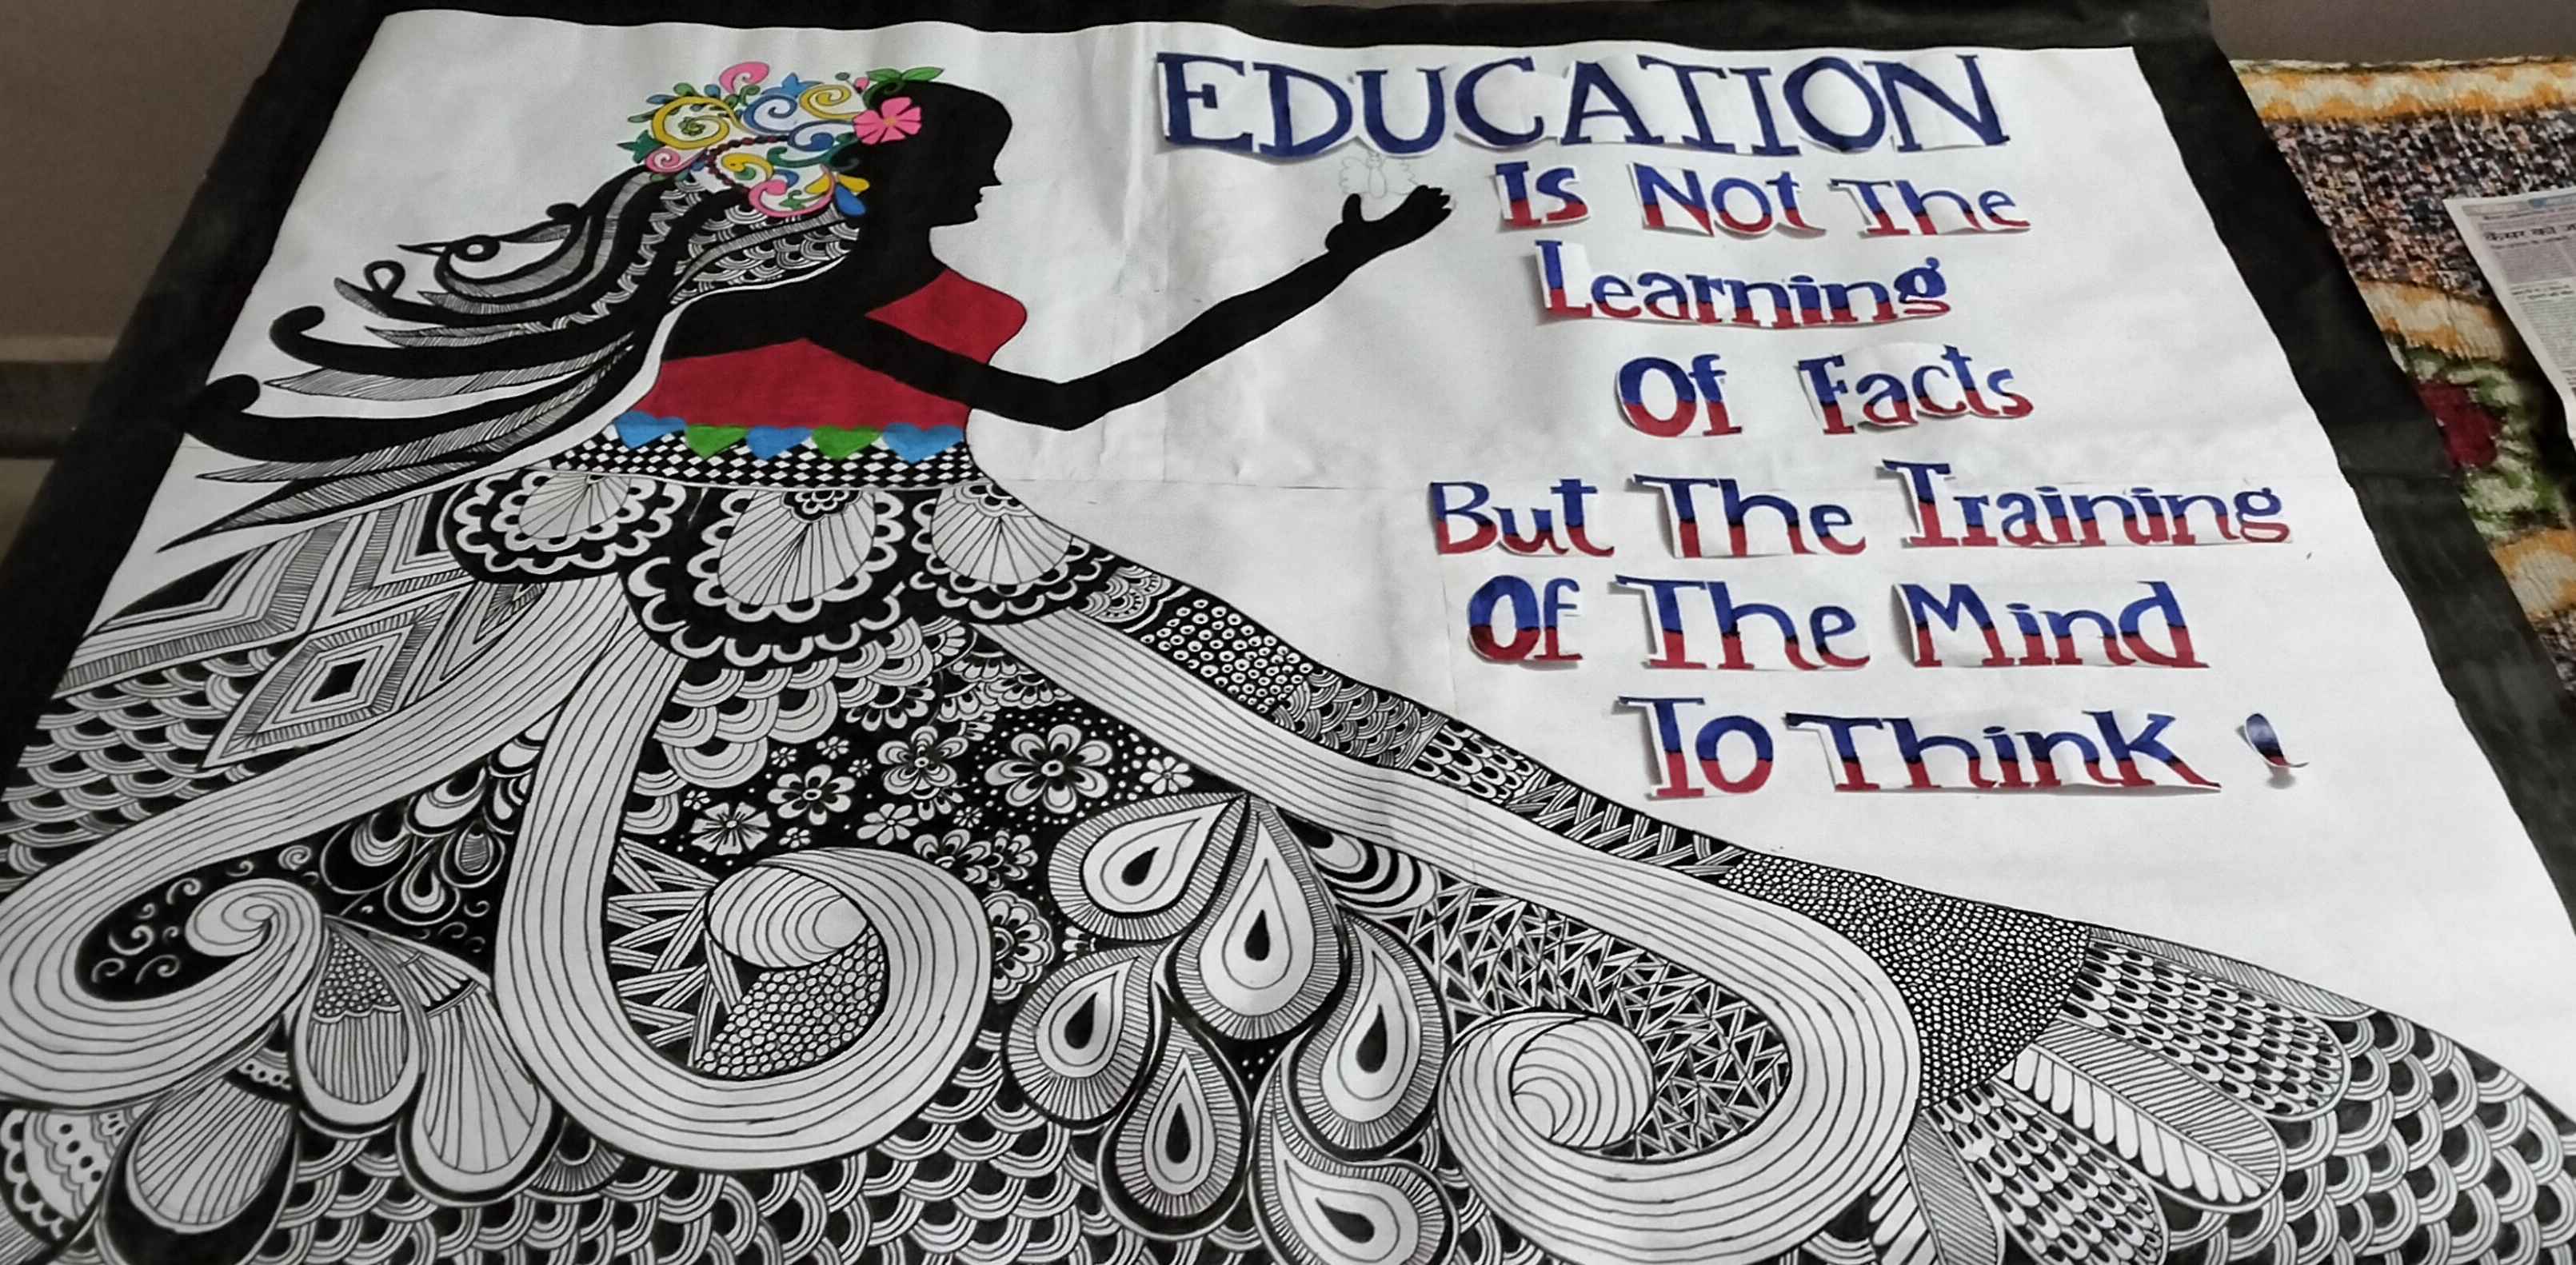 EDUCATION
Is Not The
Learning
Of Facts
But The Training
Of The Mind
To Think !